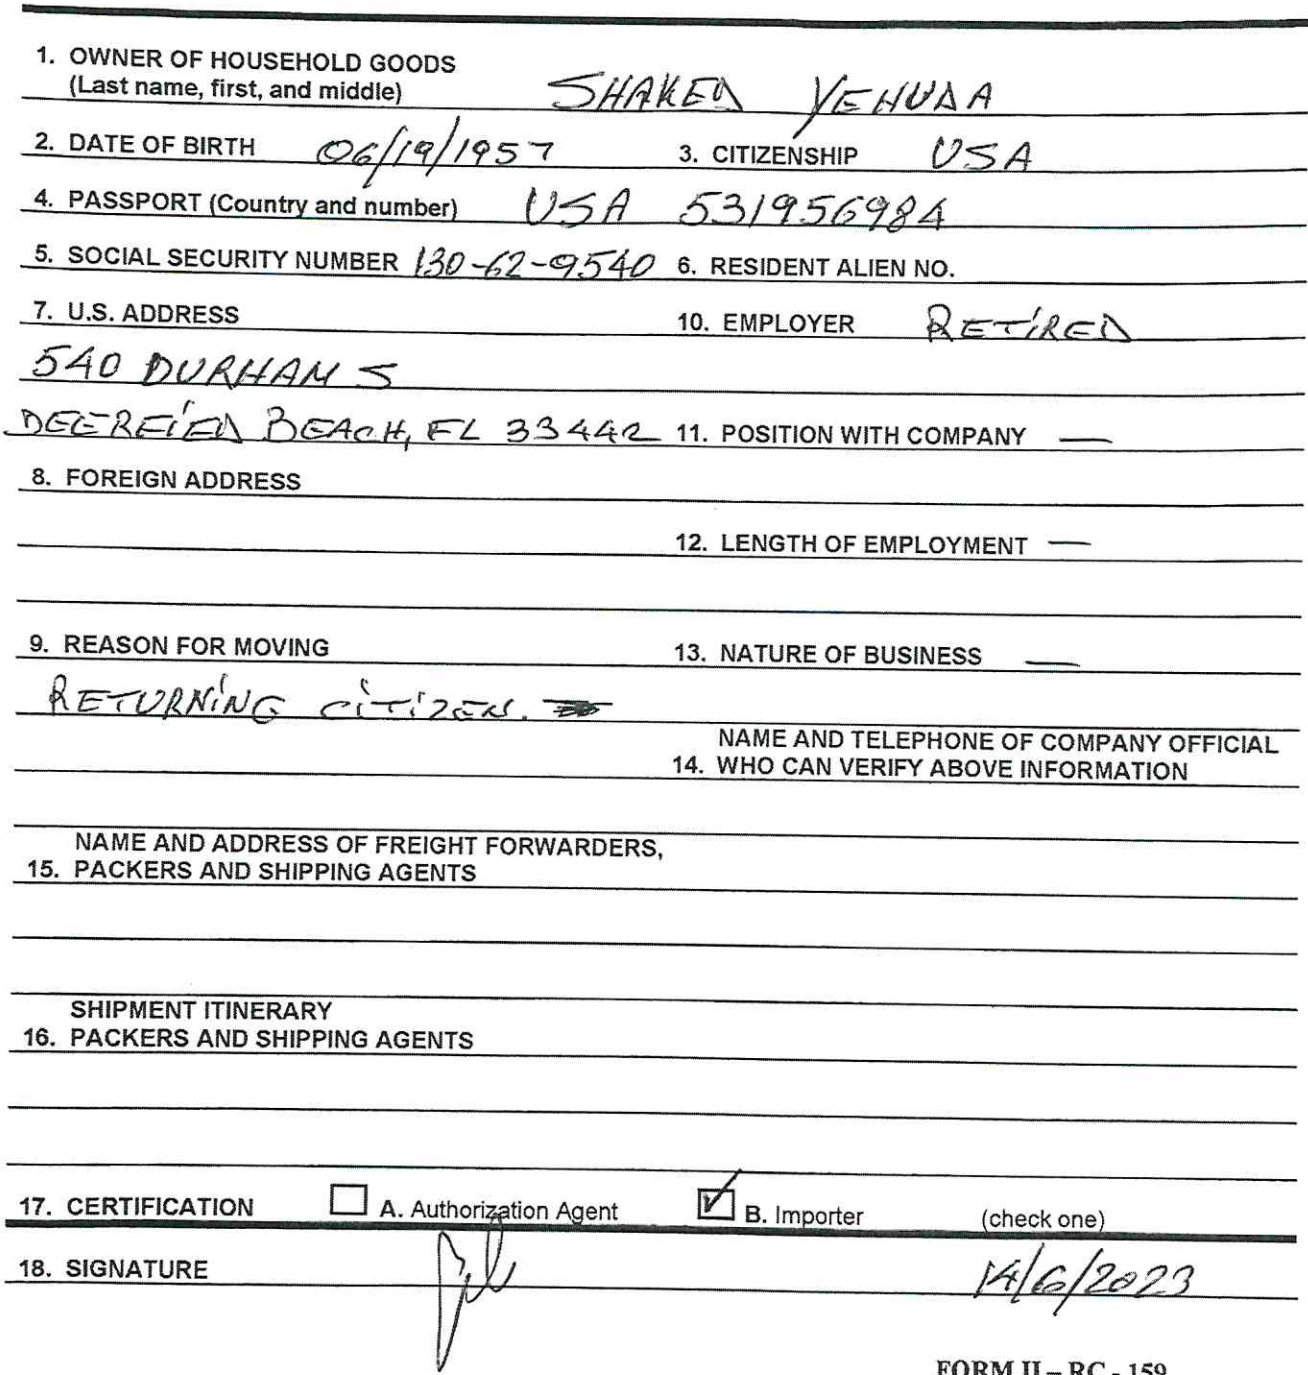 1. OWNER OF HOUSEHOLD GOODS
(Last name, first, and middle) SHAKED YEHUDA
2. DATE OF BIRTH 06/19/1957 3. CITIZENSHIP USA
4. PASSPORT (Country and number) USA 531956984
5. SOCIAL SECURITY NUMBER 130-62-9540 6. RESIDENT ALIEN NO.
7. U.S. ADDRESS 10. EMPLOYER RETIRED
540 DURHAM S
DEEREIED BEACH, FL 33442 11. POSITION WITH COMPANY —
8. FOREIGN ADDRESS
12. LENGTH OF EMPLOYMENT —
9. REASON FOR MOVING 13. NATURE OF BUSINESS —
RETURNING CITIZEN.
NAME AND TELEPHONE OF COMPANY OFFICIAL
14. WHO CAN VERIFY ABOVE INFORMATION
NAME AND ADDRESS OF FREIGHT FORWARDERS,
15. PACKERS AND SHIPPING AGENTS
SHIPMENT ITINERARY
16. PACKERS AND SHIPPING AGENTS
17. CERTIFICATION A. Authorization Agent B. Importer (check one)
18. SIGNATURE 14/6/2023
FORM II – RC - 159